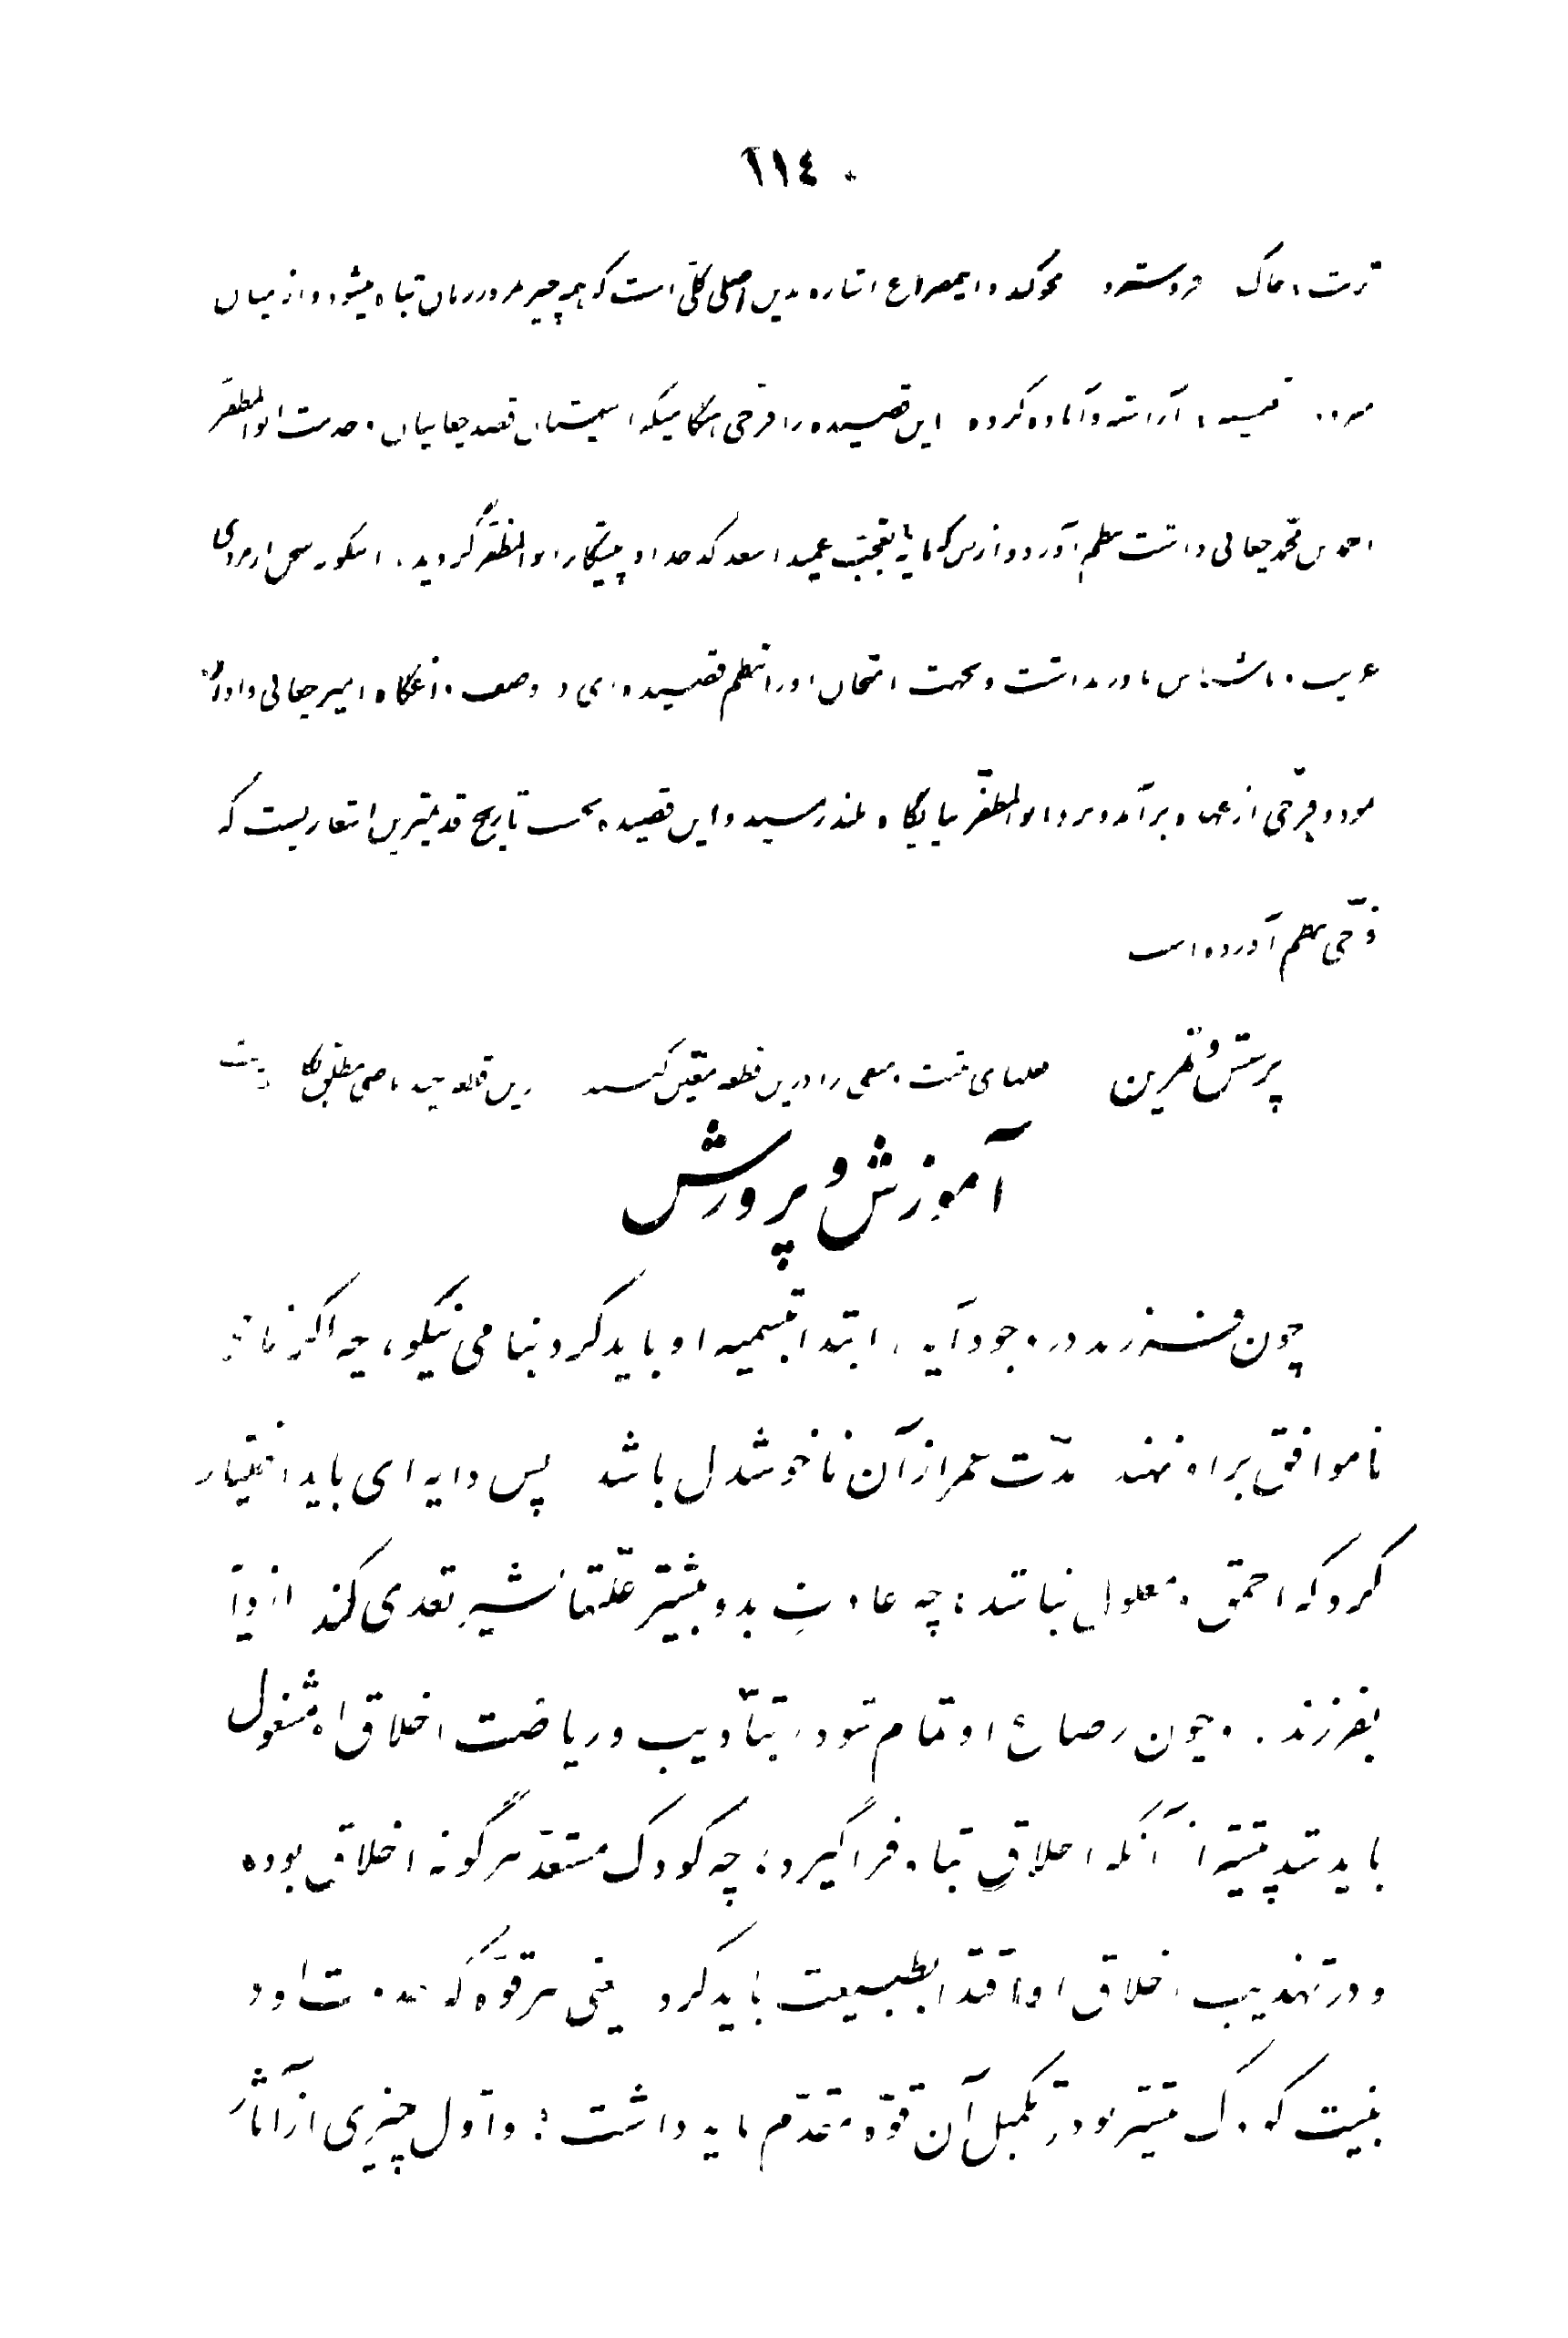 ٦١٤
تربت، خاک فروسترد محو کند و این مصراع اشاره بدین اصلی کلّی است که هر چیز بمرور زمان تباه میشود و از میان
میرود. آراسته و آماده کرده این قصیده را فرخی هنگامیکه از سیستان قصد چغانیان و خدمت ابوالمظفّر
احمد بن محمّد چغانی داشت بنظم آورد و از بس که مایهٔ تعجّب عمید اسعد کدخدا و پیشکار ابوالمظفّر گردید. اینگونه سخن از مردی
غریب و ناشناس باور نداشت و بجهت امتحان او را بنظم قصیده‌ای در وصف داغگاه امیر چغانی وادار
نمود و فرّخی از عهده برآمد و نزد ابوالمظفّر بپایگاه بلند رسید و این قصیده بحسب تاریخ قدیمترین اشعاریست که
فرّخی بنظم آورده است
پرسش و تمرین فعلهای مثبت و منفی را درین قطعه معیّن کنید درین قطعه چند ماضی مطلق بکار رفته
آموزش و پرورش
چون فرزند در وجود آید، ابتدا بتسمیه او باید کرد بنامی نیکو، چه اگر نامی
ناموافق بر او نهند مدّت عمر از آن ناخوشدل باشد پس دایه‌ای باید اختیار
کرد که احمق و معلول نباشد؛ چه عادتِ بد و بیشتر علّتها بشیر تعدی کند از دایه
بفرزند. و چون رضاع او تمام شود، بتأدیب و ریاضت اخلاق او مشغول
باید شد پیشتر از آنکه اخلاقِ تباه فراگیرد؛ چه کودک مستعدّ هرگونه اخلاق بوده
و در تهذیب اخلاق او اقتدا بطبیعت باید کرد یعنی هر قوّه که حدوث او در
بنیت کودک پیشتر بود در تکمیل آن قوّه مقدّم باید داشت؛ و اوّل چیزی از آثار